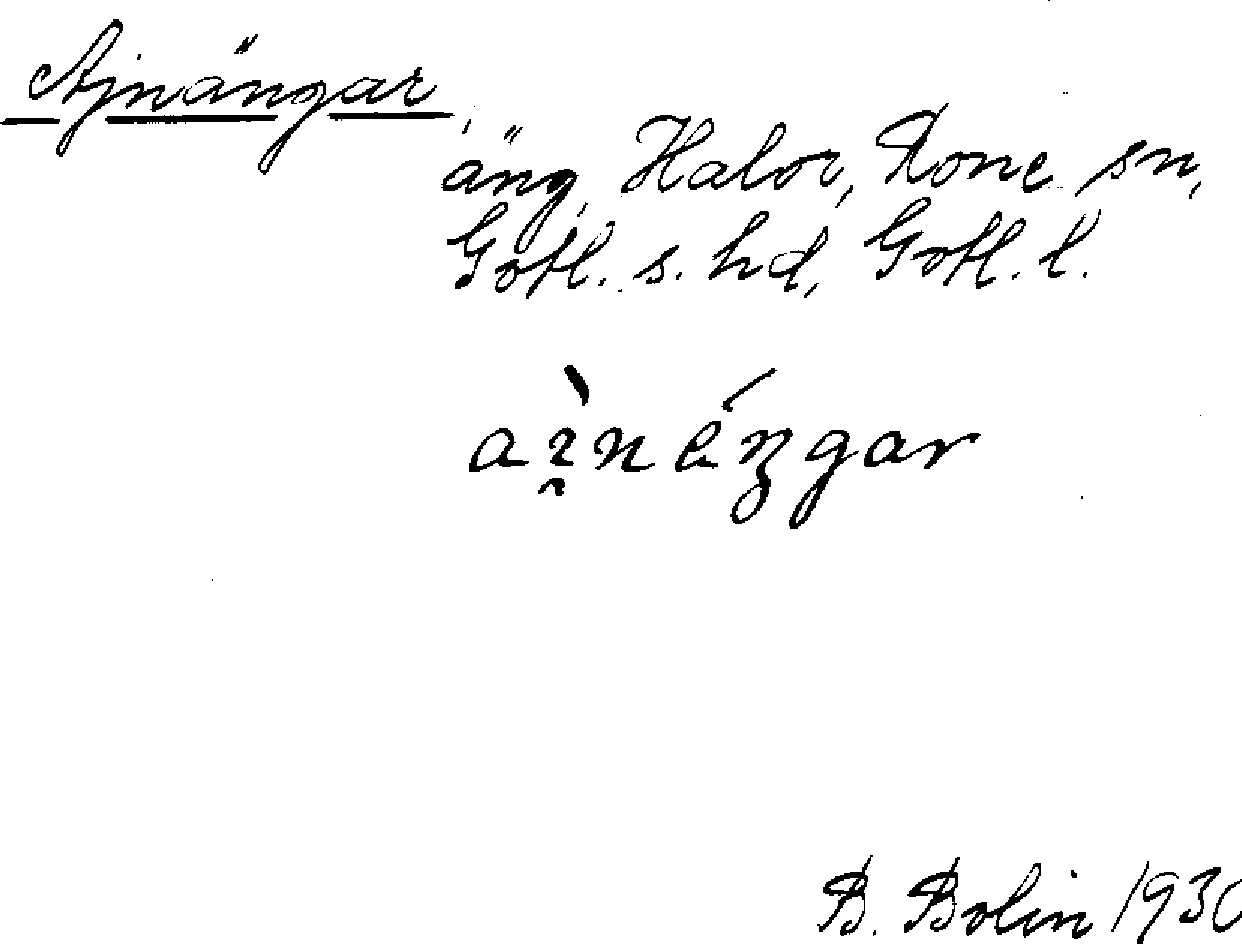 Ajnängar,
äng, Halor, Rone sn,
Gotl. s. hd, Gotl. l.
B. Bolin 1930